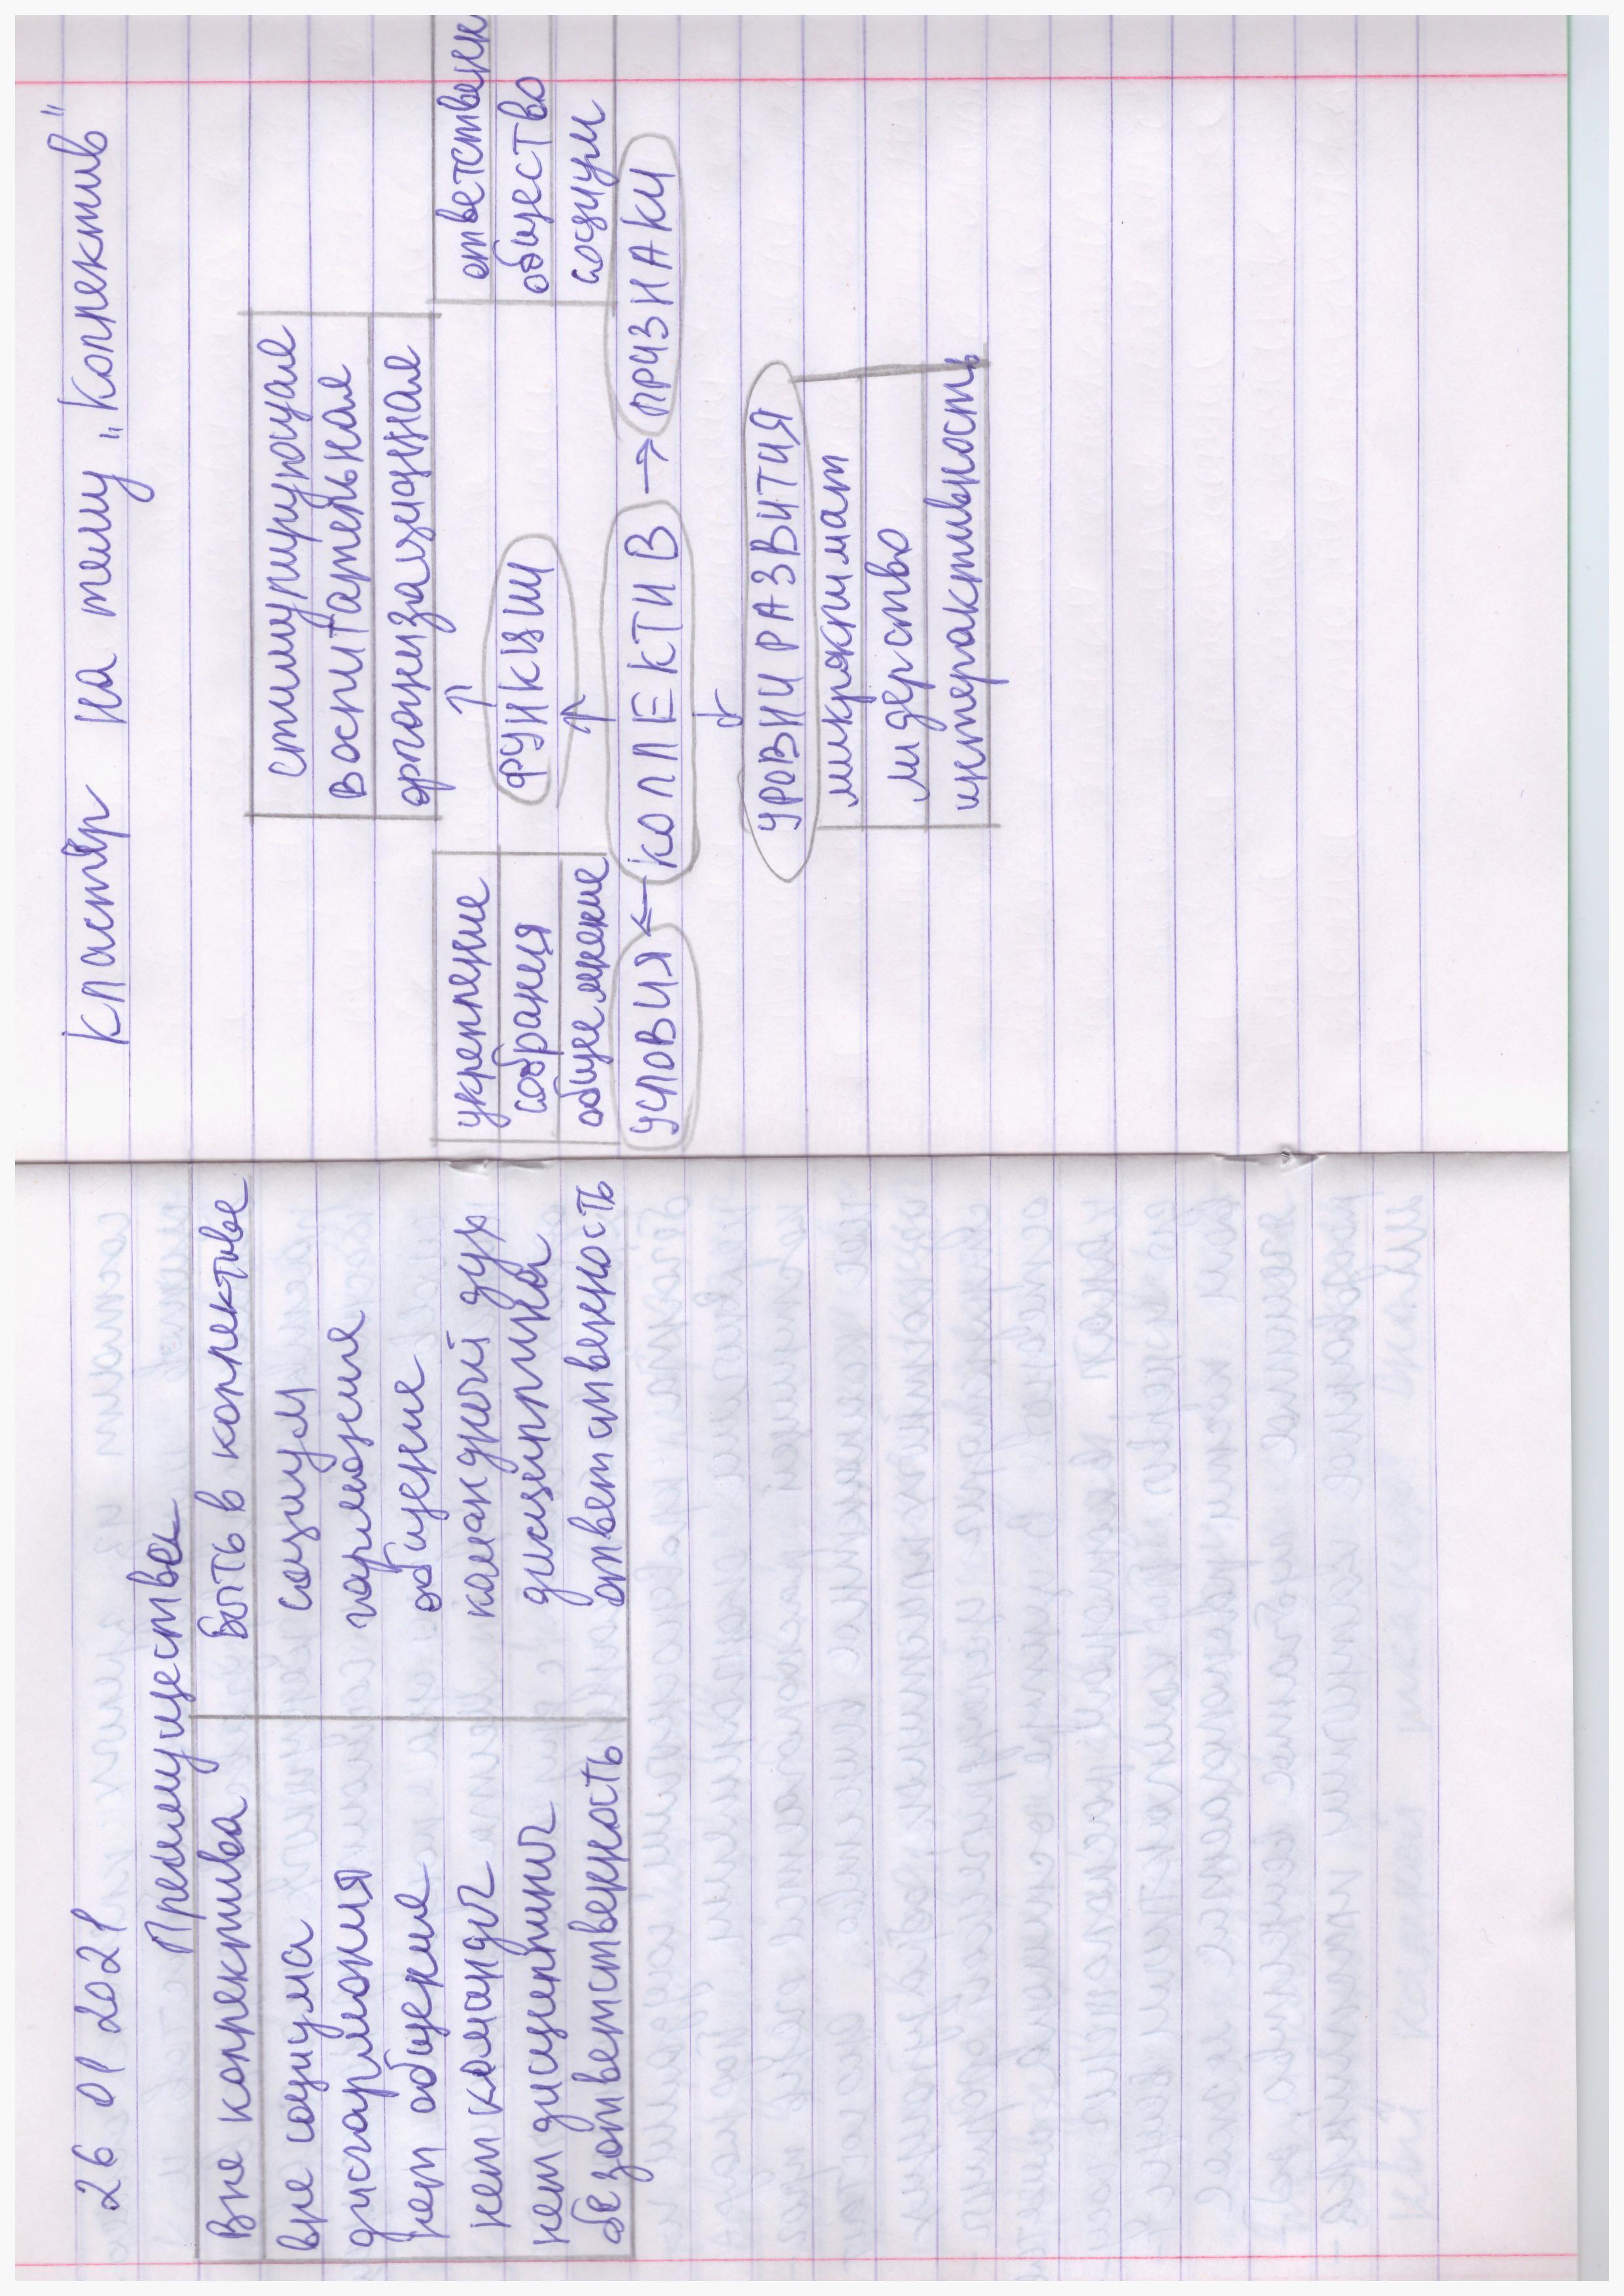 26 01 2021
Преимущества
Вне коллектива Быть в коллективе
вне социума социум
дисгармония гармония
нет общения общение
нет команды командный дух
нет дисциплины дисциплина
безответственность ответственность
Кластер на тему „Коллектив"
стимулирующая
воспитательная
организационная
укрепление ответственн
собрания ФУНКЦИИ общество
общее мнение социум
УСЛОВИЯ ← КОЛЛЕКТИВ → ПРИЗНАКИ
УРОВНИ РАЗВИТИЯ
микроклимат
лидерство
интерактивность